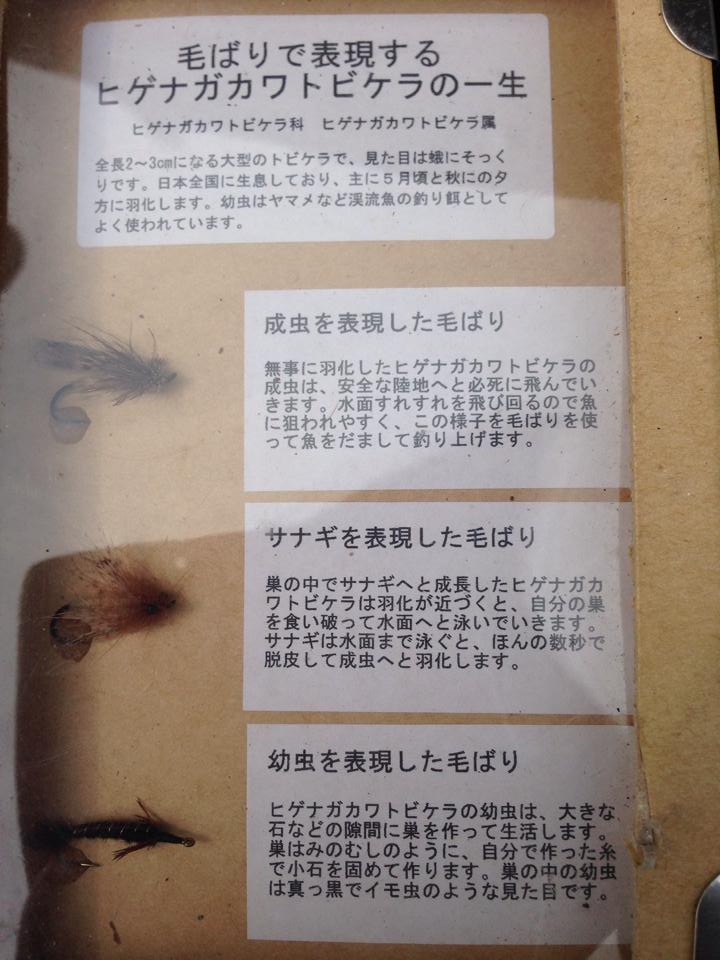 毛ばりで表現する
ヒゲナガカワトビケラの一生
ヒゲナガカワトビケラ科　ヒゲナガカワトビケラ属
全長2～3cmになる大型のトビケラで、見た目は蛾にそっく
りです。日本全国に生息しており、主に５月頃と秋にの夕
方に羽化します。幼虫はヤマメなど渓流魚の釣り餌として
よく使われています。
成虫を表現した毛ばり
無事に羽化したヒゲナガカワトビケラの
成虫は、安全な陸地へと必死に飛んでい
きます。水面すれすれを飛び回るので魚
に狙われやすく、この様子を毛ばりを使
って魚をだまして釣り上げます。
サナギを表現した毛ばり
巣の中でサナギへと成長したヒゲナガカ
ワトビケラは羽化が近づくと、自分の巣
を食い破って水面へと泳いでいきます。
サナギは水面まで泳ぐと、ほんの数秒で
脱皮して成虫へと羽化します。
幼虫を表現した毛ばり
ヒゲナガカワトビケラの幼虫は、大きな
石などの隙間に巣を作って生活します。
巣はみのむしのように、自分で作った糸
で小石を固めて作ります。巣の中の幼虫
は真っ黒でイモ虫のような見た目です。